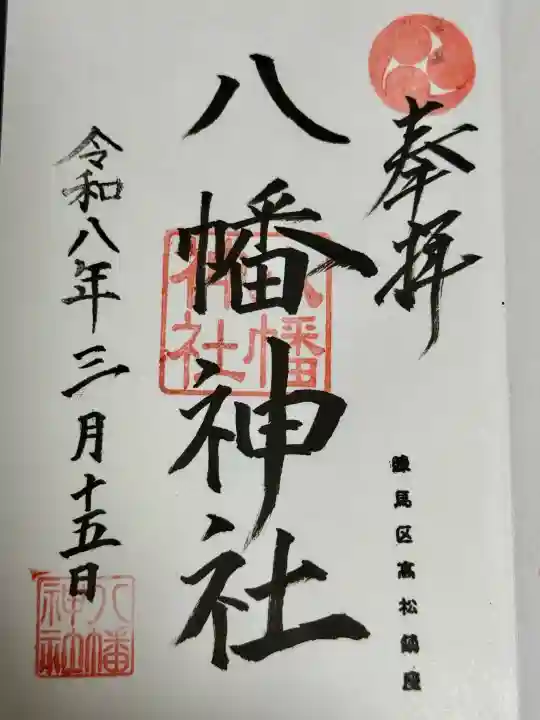 奉拝
練馬区高松鎮座
八幡神社
八幡
神社
令和八年三月十五日
八幡
神社